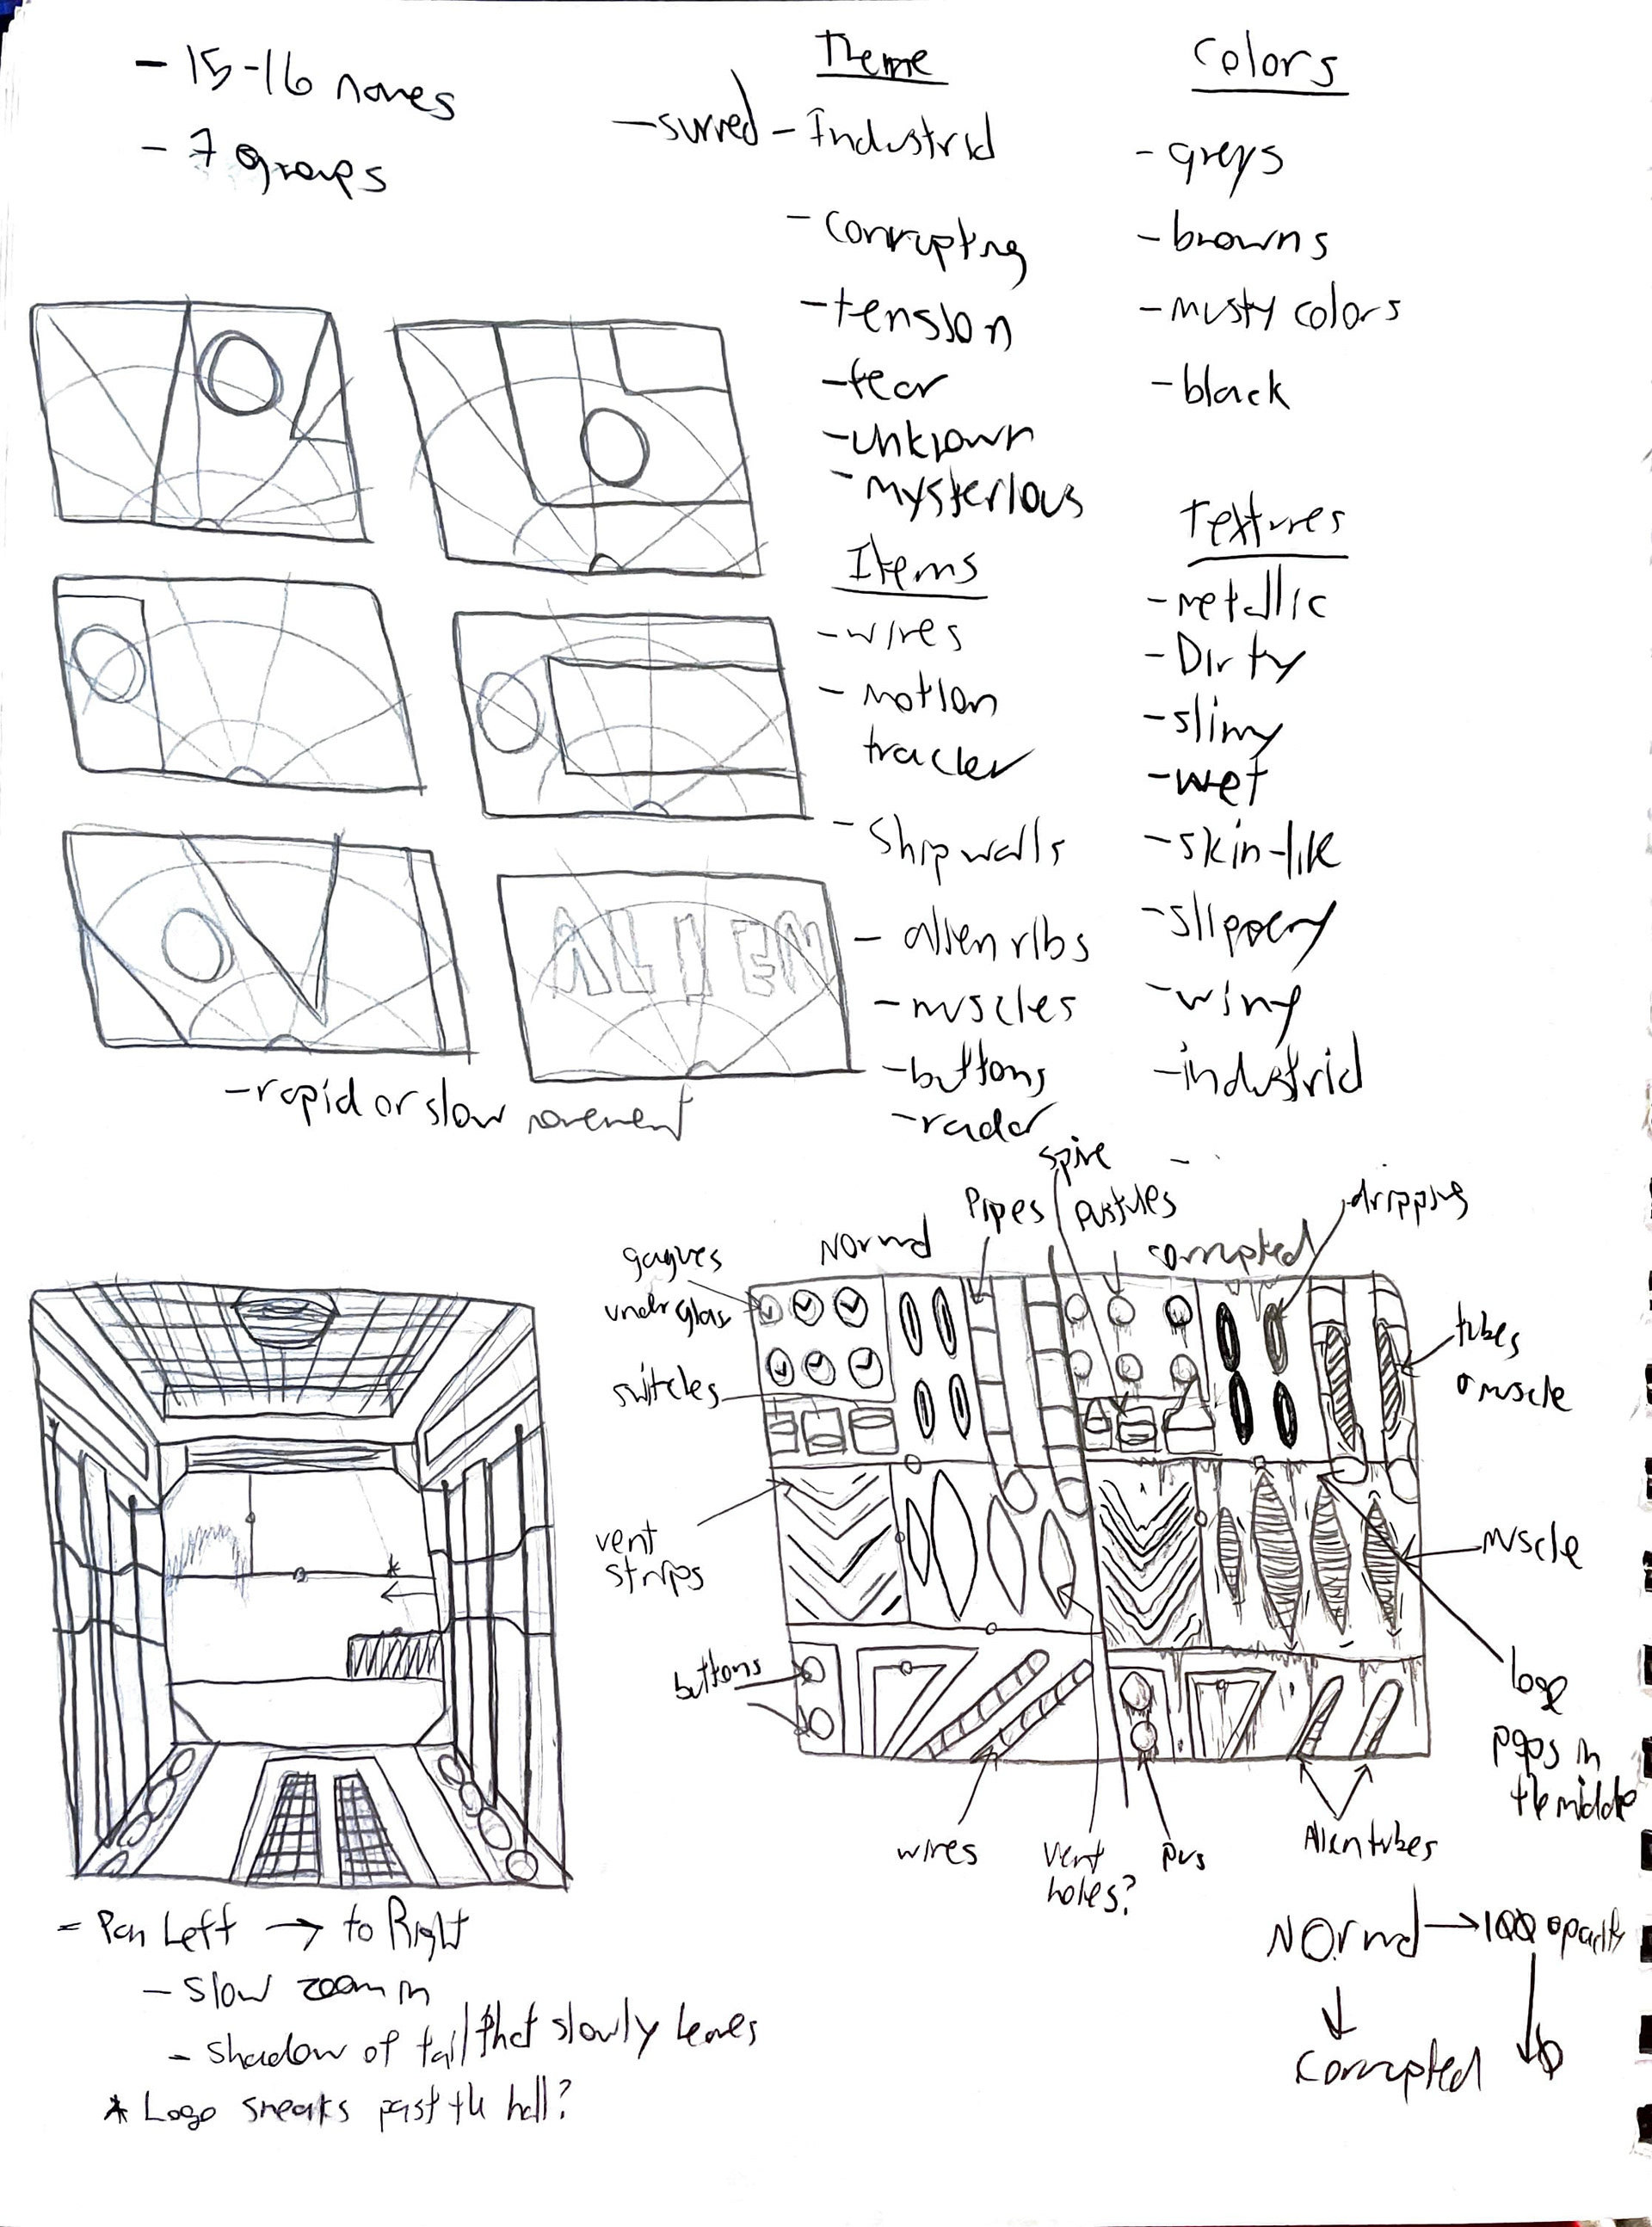 - 15-16 names
- 7 groups
Theme
- surreal - Industrial
- corrupting
- tension
- fear
- unknown
- mysterious
Colors
- greys
- browns
- musty colors
- black
Items
- wires
- motion
tracker
- Ship walls
- alien ribs
- muscles
- buttons
- radar
Textures
- metallic
- Dirty
- slimy
- wet
- skin-like
- slippery
- winy
- industrial
ALIEN
- rapid or slow movement
Normal
corrupted
gagues
under glas
switches
vent
strips
buttons
Pipes
spine
pustules
dripping
tubes
o muscle
muscle
logo
pops in
the middle
wires
vent
holes?
pus
Alien tubes
Normal → 100 opacity
↓
Corrupted
↓ 0
- Pan Left → to Right
- slow zoom in
- shadow of tail that slowly leaves
* Logo sneaks past the hall?